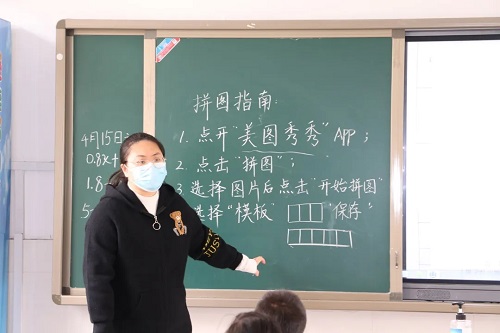 拼图指南:
1. 点开"美图秀秀"APP;
2. 点击"拼图";
3 选择图片后点击"开始拼图"
选择"模板" "保存"
4月15日
0.8x+
1.8-
5-